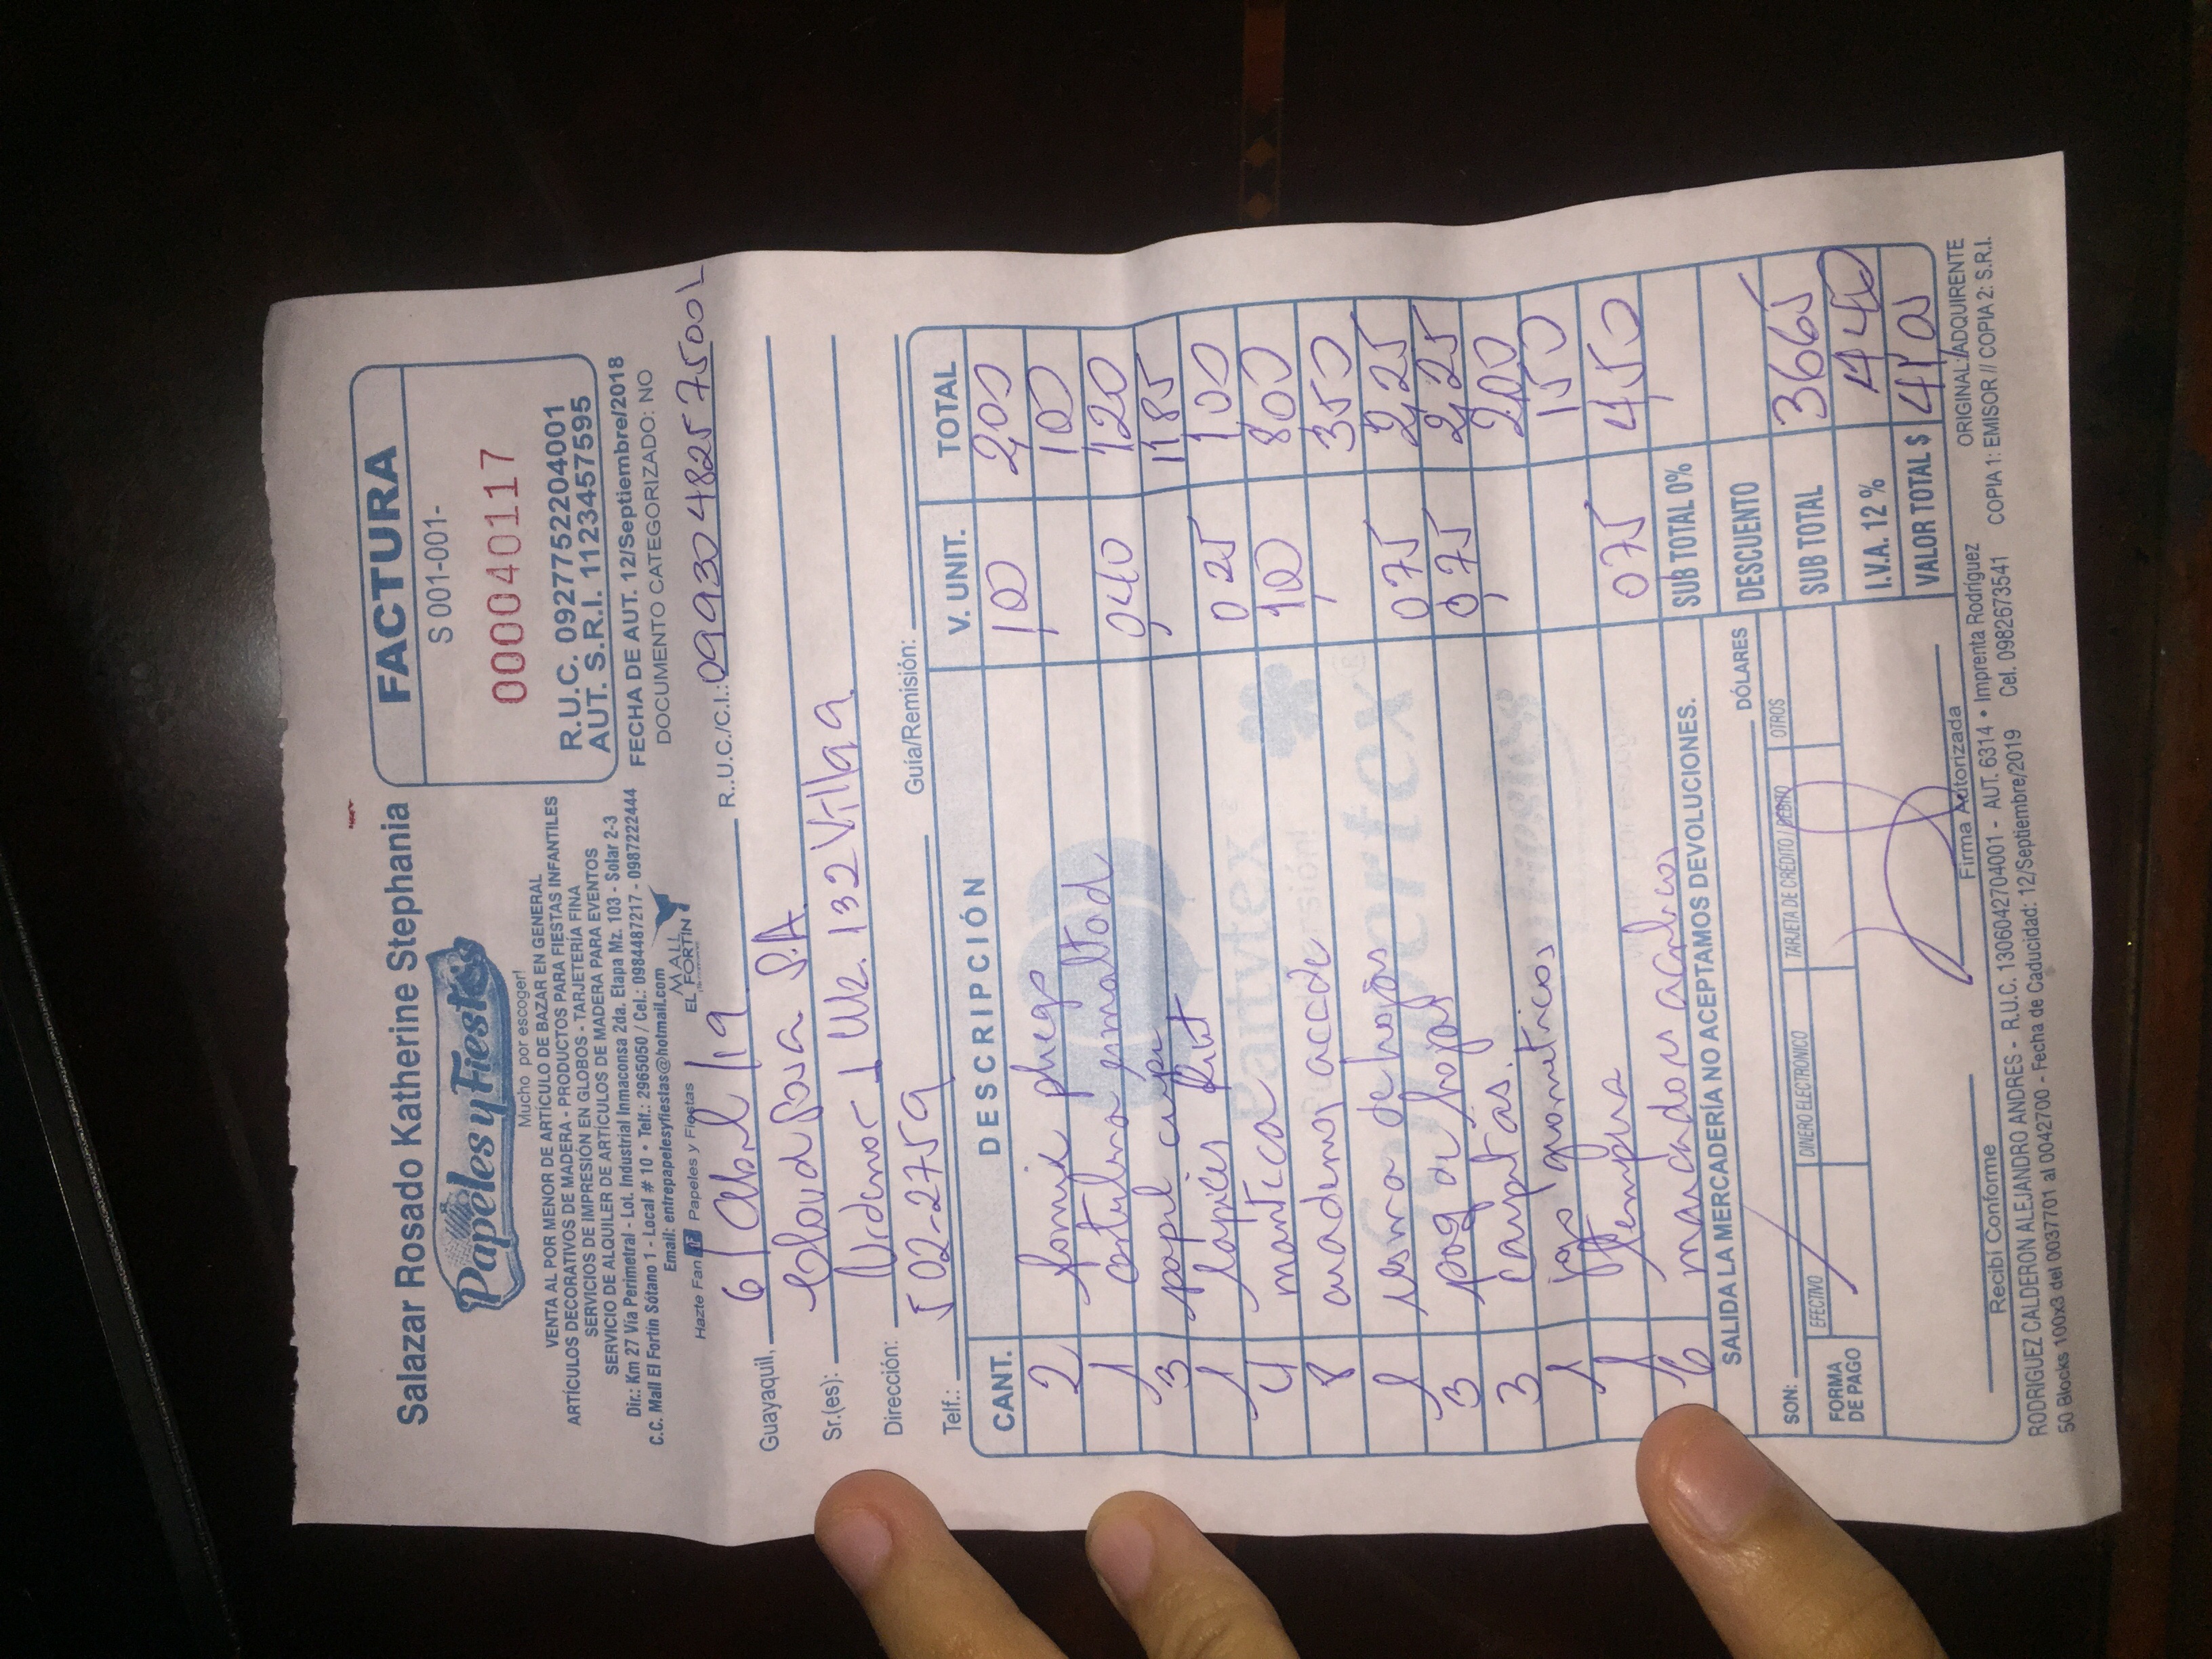 Salazar Rosado Katherine Stephania
Papeles y Fiestas
Mucho por escoger!
VENTA AL POR MENOR DE ARTÍCULO DE BAZAR EN GENERAL
ARTÍCULOS DECORATIVOS DE MADERA - PRODUCTOS PARA FIESTAS INFANTILES
SERVICIOS DE IMPRESIÓN EN GLOBOS - TARJETERÍA FINA
SERVICIO DE ALQUILER DE ARTÍCULOS DE MADERA PARA EVENTOS
Dir.: Km 27 Vía Perimetral - Lot. Industrial Inmaconsa 2da. Etapa Mz. 103 - Solar 2-3
C.C. Mall El Fortín Sótano 1 - Local # 10 • Telf.: 2965050 / Cel.: 0984487217 - 0987222444
Email: entrepapelesyfiestas@hotmail.com
Hazte Fan f Papeles y Fiestas
MALL
EL FORTÍN
FACTURA
S 001-001-
000040117
R.U.C. 0927752204001
AUT. S.R.I. 1123457595
FECHA DE AUT. 12/Septiembre/2018
DOCUMENTO CATEGORIZADO: NO
Guayaquil, 6/Abril/19 R..U.C./C.I.:
Sr.(es): S.A.
Dirección: Urdenor 1 Mz. 132 Villa 9
Telf.: 502-2759 Guía/Remisión:
CANT. DESCRIPCIÓN V. UNIT. TOTAL
2 fomix pliego 1,00 2,00
1 cartulina esmaltad 1,00
3 papel 0,40 1,20
1 lapices 1185
4 manteca 0,25 1,00
8 cuadernos 1,00 8,00
1 resma de hojas 3,50
3 paq de hojas 0,75 2,25
3 carpetas. 0,75 2,25
1 jgo geometricos 2,00
1 tempera 1,50
6 marcadores acrilicos 0,75 4,50
SALIDA LA MERCADERÍA NO ACEPTAMOS DEVOLUCIONES.
SUB TOTAL 0%
DESCUENTO
SON: DÓLARES
SUB TOTAL 3665
FORMA DE PAGO EFECTIVO DINERO ELECTRÓNICO TARJETA DE CRÉDITO / DEBITO OTROS
I.V.A. 12 % 4,40
VALOR TOTAL $ 41,05
Recibí Conforme
Firma Autorizada
ORIGINAL: ADQUIRENTE
RODRIGUEZ CALDERON ALEJANDRO ANDRES - R.U.C. 1306042704001 - AUT. 6314 • Imprenta Rodríguez
50 Blocks 100x3 del 0037701 al 0042700 - Fecha de Caducidad: 12/Septiembre/2019 Cel. 0982673541
COPIA 1: EMISOR // COPIA 2: S.R.I.